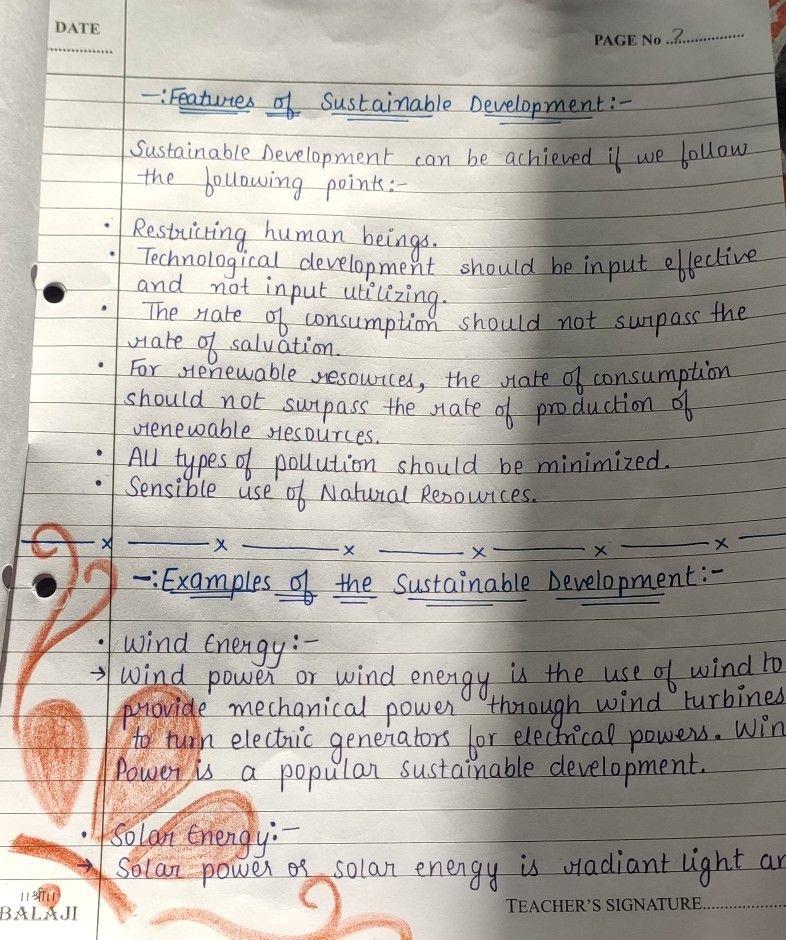 DATE
PAGE No ..2..............
-:Features of Sustainable Development:-
Sustainable Development can be achieved if we follow
the following points:-
• Restricting human beings.
• Technological development should be input effective
and not input utilizing.
• The rate of consumption should not surpass the
rate of salvation.
• For renewable resources, the rate of consumption
should not surpass the rate of production of
renewable resources.
• All types of pollution should be minimized.
• Sensible use of Natural Resources.
-:Examples of the Sustainable Development:-
• Wind Energy:-
→ Wind power or wind energy is the use of wind to
provide mechanical power through wind turbines
to turn electric generators for electrical powers. Win
Power is a popular sustainable development.
• Solar Energy:-
→ Solar power or solar energy is radiant light an
॥श्री॥
BALAJI
TEACHER'S SIGNATURE..................